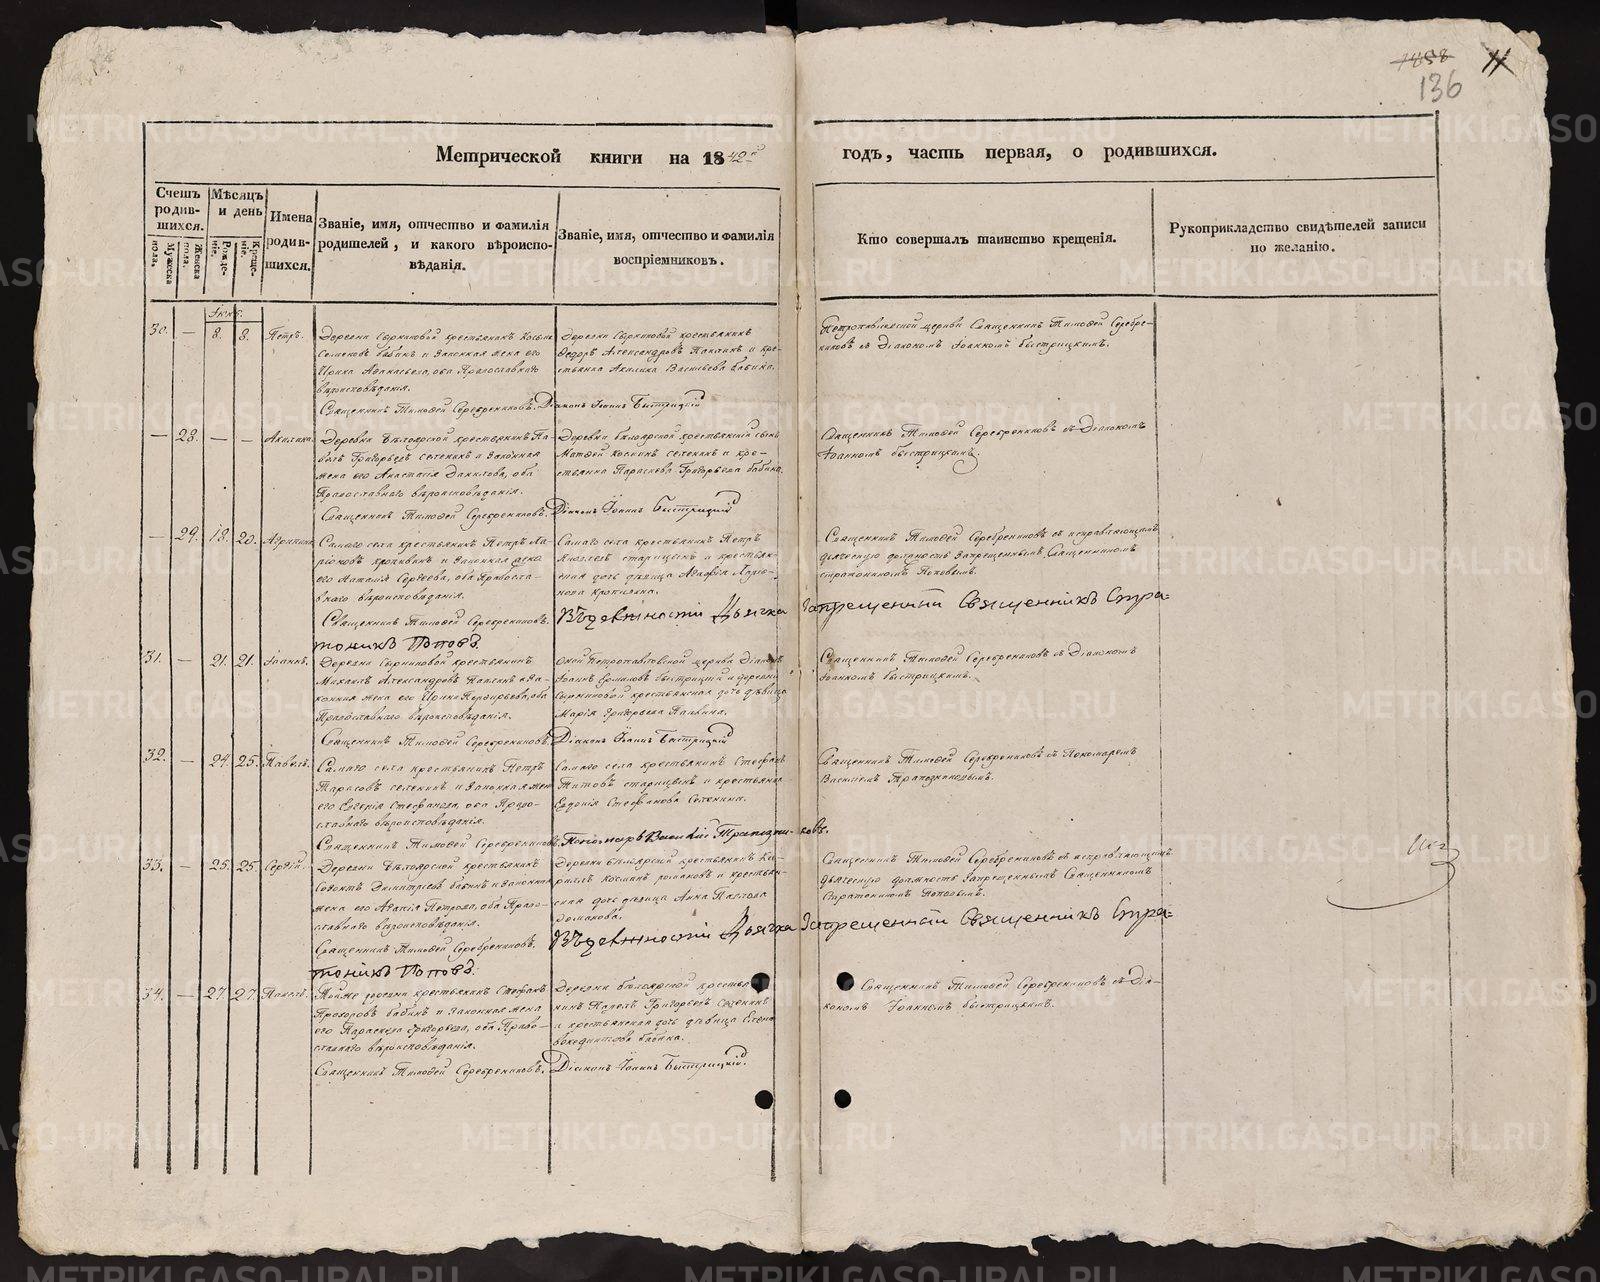 1858
11
136
Метрической книги на 1842й
годъ, часть первая, о родившихся.
Счетъ родив-шихся.
Мужеска пола.
Женска пола.
Мѣсяцъ и день
Рожде-ніе.
Креще-ніе.
Имена родив-шихся.
Званіе, имя, отчество и фамилія
родителей, и какого вѣроиспо-
вѣданія.
Званіе, имя, отчество и фамилія
воспріемниковъ.
Кто совершалъ таинство крещенія.
Рукоприкладство свидѣтелей записи
по желанію.
30. — 8. 8. Петръ.
Деревни крестьянинъ Козма
Семеновъ бабинъ и законная жена его
Ирина Афанасьева, оба Православнаго
вѣроисповѣданія.
Священникъ Тимофей Серебренниковъ.
Деревни крестьянинъ
Федоръ Александровъ и кре-
стьянка Акилина Васильева бабина.
Діаконъ Іоаннъ Быстрицкій
Петропавловской церкви Священникъ Тимофей Серебре-
никовъ съ Діакономъ Іоанномъ быстрицкимъ.
— 28. — — Акилина.
Деревни бѣлоярской крестьянинъ Па-
велъ Григорьевъ селенинъ и законная
жена его Анастасія Данилова, оба
Православнаго вѣроисповѣданія.
Священникъ Тимофей Серебренниковъ.
Деревни бѣлоярской крестьянскій сынъ
Матфей Козминъ селенинъ и кре-
стьянка Параскева Григорьева бабина.
Діаконъ Іоаннъ Быстрицкій
Священникъ Тимофей Серебрениковъ съ Діакономъ
Іоанномъ быстрицкимъ.
— 29. 18. 20. Агрипина
Самаго села крестьянинъ Петръ Ла-
ріоновъ и законная жена
его Наталія Сергеева, оба Правосла-
внаго вѣроисповѣданія.
Священникъ Тимофей Серебренниковъ.
Самаго села крестьянинъ Петръ
старицынъ и крестьян-
ская дочь дѣвица Агафія Ларіо-
нова
Въ должности Дьячка Запрещенный Священникъ Стра-
тоникъ Поповъ.
Священникъ Тимофей Серебрениковъ съ исправляющимъ
дьяческую должность запрещеннымъ Священникомъ
стратоникомъ Поповымъ.
31. — 21. 21. Іоаннъ.
Деревни крестьянинъ
Михаилъ Александровъ и За-
конная жена его Ирина оба
Православнаго вѣроисповѣданія.
Священникъ Тимофей Серебренниковъ.
Оной Петропавловской церкви Діаконъ
Іоаннъ быстрицкій и деревни
крестьянская дочь дѣвица
Марія Григорьева
Діаконъ Іоаннъ Быстрицкій
Священникъ Тимофей Серебрениковъ съ Діакономъ
Іоанномъ быстрицкимъ.
32. — 24. 25. Павелъ.
Самаго села крестьянинъ Петръ
Тарасовъ селенинъ и Законная жена
его Евгенія Стефанова, оба Право-
славнаго вѣроисповѣданія.
Священникъ Тимофей Серебренниковъ.
Самаго села крестьянинъ Стефанъ
Титовъ старицынъ и крестьянка
Евдокія Стефанова Селенина.
Пономарь Василій Трапезниковъ.
Священникъ Тимофей Серебрениковъ съ Пономаремъ
Василіемъ Трапезниковымъ.
33. — 25. 25. Сергій.
Деревни бѣлоярской крестьянинъ
Димитріевъ бабинъ и законная
жена его Петрова, оба Право-
славнаго вѣроисповѣданія.
Священникъ Тимофей Серебренниковъ.
Деревни бѣлоярской крестьянинъ Ки-
риллъ Козминъ и крестьян-
ская дочь дѣвица Анна Павлова
Въ должности Дьячка Запрещенный Священникъ Стра-
тоникъ Поповъ.
Священникъ Тимофей Серебрениковъ съ исправляющимъ
дьяческую должность Запрещеннымъ Священникомъ
Стратоникомъ Поповымъ.
34. — 27. 27. Павелъ.
Тойже деревни крестьянинъ Стефанъ
Прохоровъ бабинъ и Законная жена
его Параскева Григорьева, оба Право-
славнаго вѣроисповѣданія.
Священникъ Тимофей Серебренниковъ.
Деревни бѣлоярской крестья-
нинъ Павелъ Григорьевъ Селенинъ
и крестьянская дочь дѣвица Елена
бабина.
Діаконъ Іоаннъ Быстрицкій.
Священникъ Тимофей Серебрениковъ съ Діа-
кономъ Іоанномъ быстрицкимъ.
METRIKI.GASO-URAL.RU